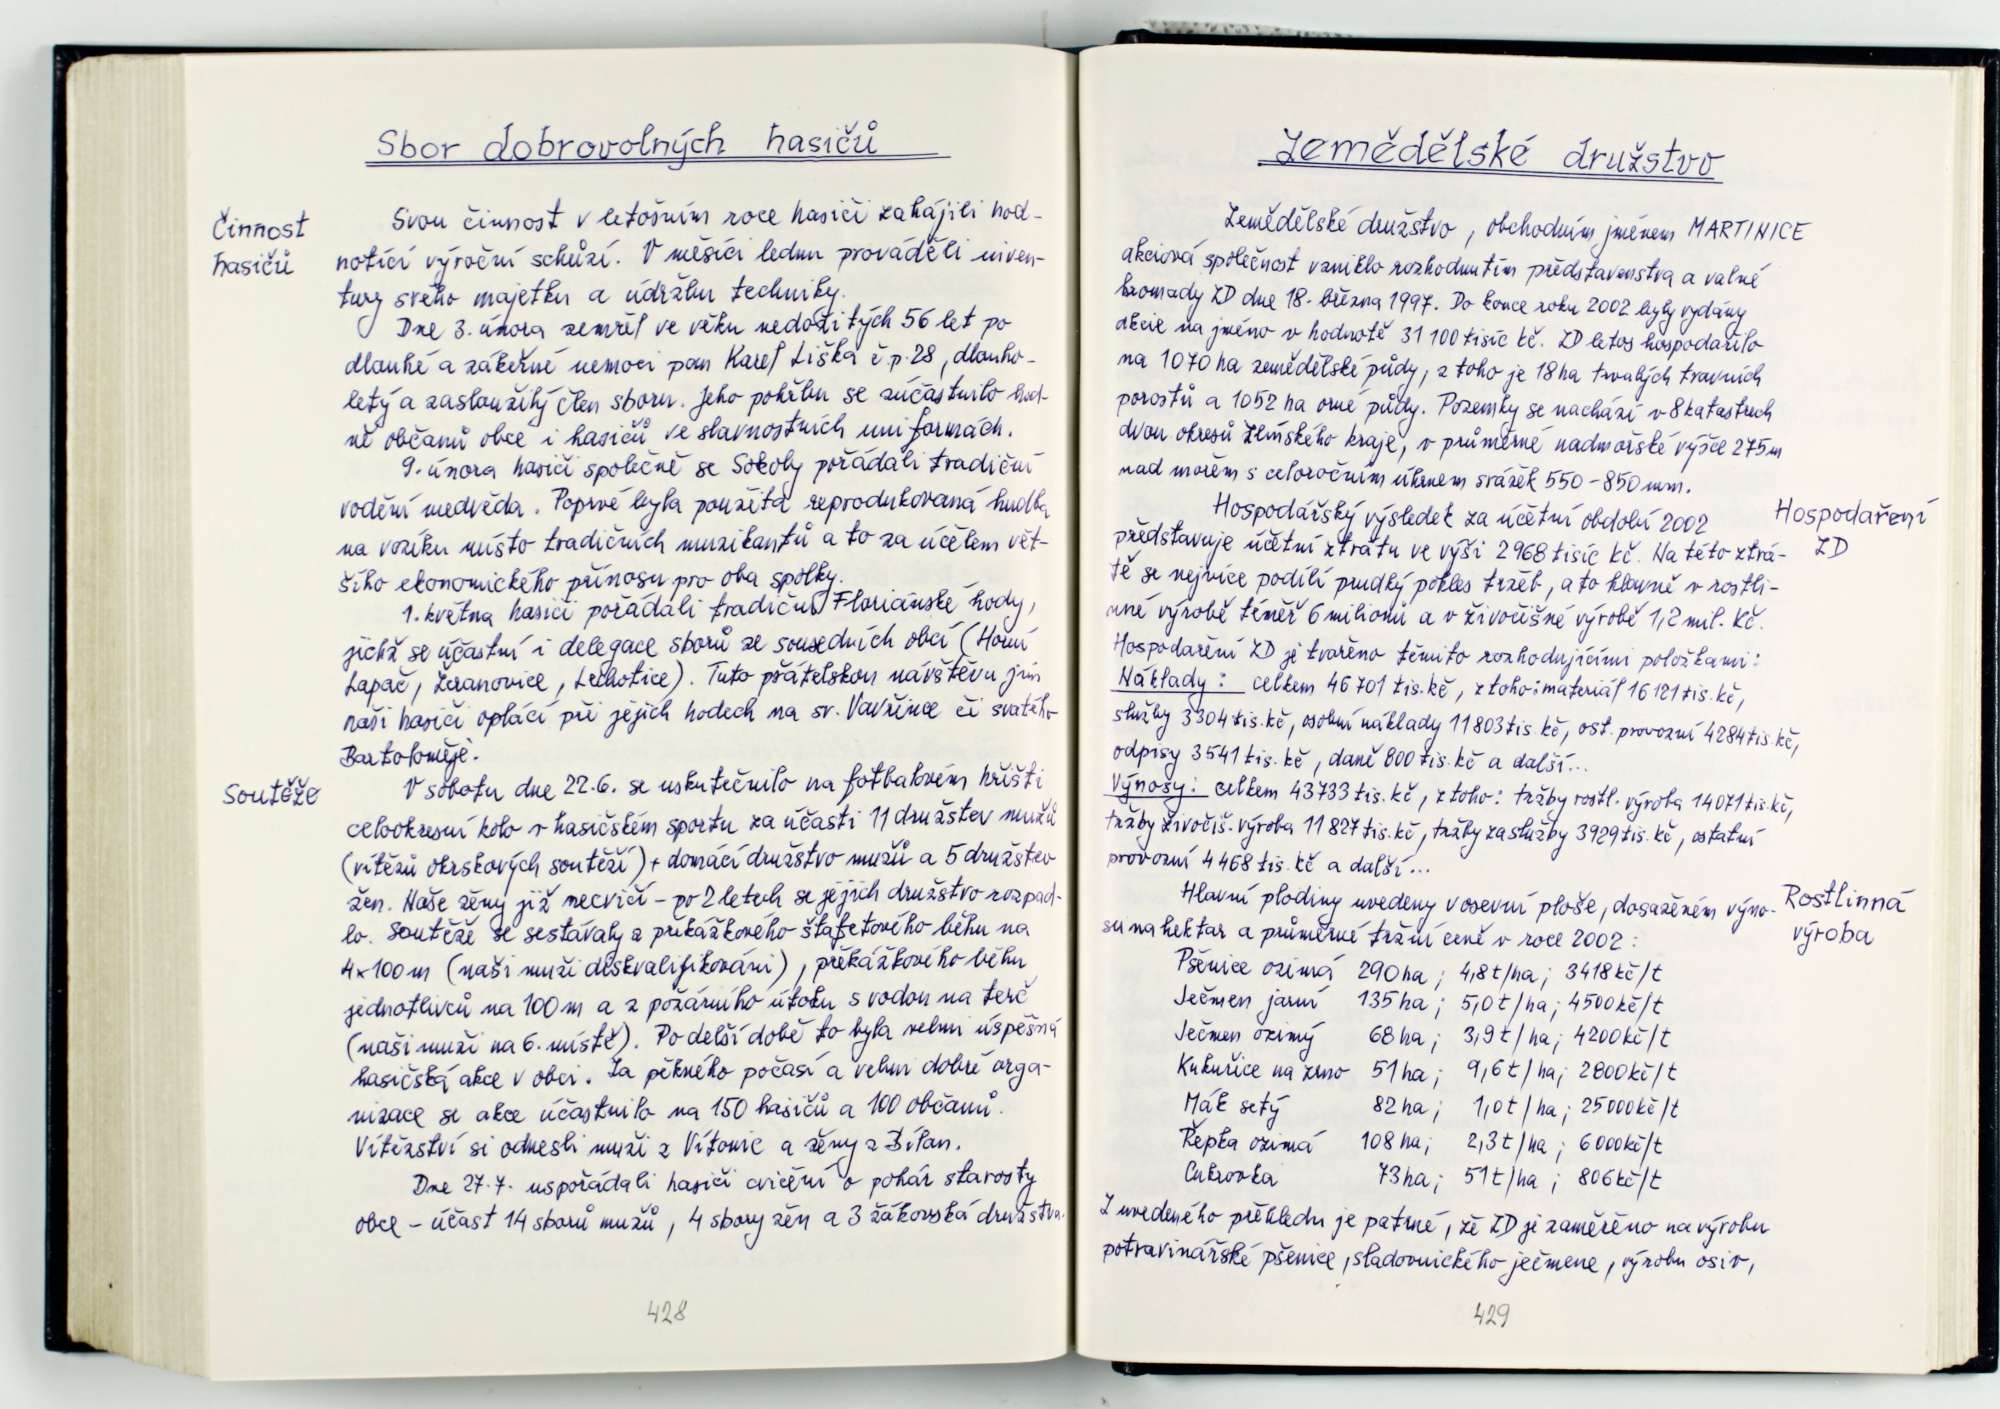 Sbor dobrovolných hasičů
Činnost
hasičů
Svou činnost v letošním roce hasiči zahájili hod-
notící výroční schůzí. V měsíci lednu prováděli inven-
tury svého majetku a údržbu techniky.
Dne 3. února zemřel ve věku nedožitých 56 let po
dlouhé a zákeřné nemoci pan Karel Liška č.p. 28, dlouho-
letý a zasloužilý člen sboru. Jeho pohřbu se zúčastnilo hod-
ně občanů obce i hasičů ve slavnostních uniformách.
9. února hasiči společně se Sokoly pořádali tradiční
vodění medvěda. Poprvé byla použita reprodukovaná hudba
na vozíku místo tradičních muzikantů a to za účelem vět-
šího ekonomického přínosu pro oba spolky.
1. května hasiči pořádali tradiční Floriánské hody,
jichž se účastní i delegace sborů ze sousedních obcí (Horní
Lapač, Žeranovice, Lechotice). Tuto přátelskou návštěvu jim
naši hasiči oplácí při jejich hodech na sv. Vavřince či svatého
Bartoloměje.
Soutěže
V sobotu dne 22.6. se uskutečnilo na fotbalovém hřišti
celookresní kolo v hasičském sportu za účasti 11 družstev mužů
(vítězů okrskových soutěží) + domácí družstvo mužů a 5 družstev
žen. Naše ženy již necvičí - po 2 letech se jejich družstvo rozpad-
lo. Soutěže se sestávaly z překážkového štafetového běhu na
4x100 m (naši muži diskvalifikováni), překážkového běhu
jednotlivců na 100 m a z požárního útoku s vodou na terč
(naši muži na 6. místě). Po delší době to byla velmi úspěšná
hasičská akce v obci. Za pěkného počasí a velmi dobré orga-
nizace se akce účastnilo na 150 hasičů a 100 občanů.
Vítězství si odnesli muži z Vítonic a ženy z Bílan.
Dne 27.7. uspořádali hasiči cvičení o pohár starosty
obce - účast 14 sborů mužů, 4 sbory žen a 3 žákovská družstva.
428
Zemědělské družstvo
Zemědělské družstvo, obchodním jménem MARTINICE
akciová společnost vzniklo rozhodnutím představenstva a valné
hromady ZD dne 18. března 1997. Do konce roku 2002 byly vydány
akcie na jméno v hodnotě 31 100 tisíc kč. ZD letos hospodařilo
na 1070 ha zemědělské půdy, z toho je 18 ha trvalých travních
porostů a 1052 ha orné půdy. Pozemky se nachází v 8 katastrech
dvou okresů Zlínského kraje, v průměrné nadmořské výšce 275 m
nad mořem s celoročním úhrnem srážek 550 - 850 mm.
Hospodaření
ZD
Hospodářský výsledek za účetní období 2002
představuje účetní ztrátu ve výši 2 968 tisíc kč. Na této ztrá-
tě se nejvíce podílí prudký pokles tržeb, a to hlavně v rostli-
nné výrobě téměř 6 milionů a v živočišné výrobě 1,2 mil. Kč.
Hospodaření ZD je tvořeno těmito rozhodujícími položkami:
Náklady: celkem 46 701 tis. kč, z toho: materiál 16 121 tis. kč,
služby 3304 tis. kč, osobní náklady 11 803 tis kč, ost. provozní 4284 tis. kč,
odpisy 3541 tis. kč, daně 800 tis. kč a další...
Výnosy: celkem 43733 tis. kč, z toho: tržby rostl. výroba 14 071 tis. kč,
tržby živočiš. výroba 11 827 tis. kč, tržby za služby 3929 tis. kč, ostatní
provozní 4 468 tis. kč a další...
Rostlinná
výroba
Hlavní plodiny uvedeny v osevní ploše, dosaženém výno-
su na hektar a průměrné tržní ceně v roce 2002:
Pšenice ozimá 290 ha; 4,8 t/ha; 3418 kč/t
Ječmen jarní 135 ha; 5,0 t/ha; 4500 kč/t
Ječmen ozimý 68 ha; 3,9 t/ha; 4200 kč/t
Kukuřice na zrno 51 ha; 9,6 t/ha; 2800 kč/t
Mák setý 82 ha; 1,0 t/ha; 25000 kč/t
Řepka ozimá 108 ha; 2,3 t/ha; 6000 kč/t
Cukrovka 73 ha; 51 t/ha; 806 kč/t
Z uvedeného přehledu je patrné, že ZD je zaměřeno na výrobu
potravinářské pšenice, sladovnického ječmene, výrobu osiv,
429